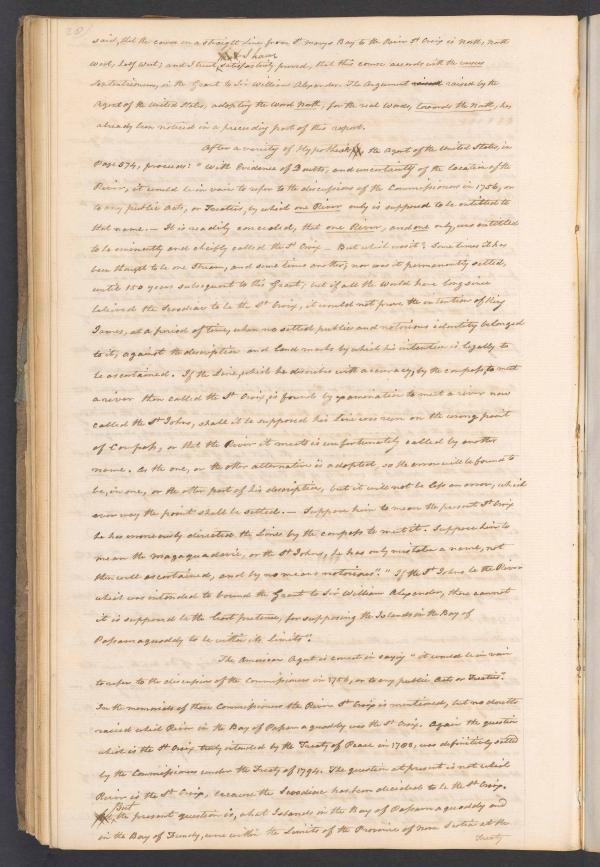 said, that the course on a straight line from St. marys Bay to the River St Croix is North, North
West, half West; and I trust I have satisfactorily proved, that this course accords with the versus
Septentrionem, in the Grant to Sir William Alexander. The Argument raised raised by the
Agent of the United States, adopting the word North, for the real words, towards the North, has
already been noticed in a preceding part of this report.
After a variety of Hypothesis, the Agent of the United States, in
Page 574, proceeds: "With Evidence of Doubts, and uncertainty of the location of the
River, it would be in vain to refer to the discussions of the Commissioners in 1756, or
to any public Acts, or Treaties, by which one River only is supposed to be entitled to
that name. — It is readily conceded, that one River, and one only, was entitled
to be eminently and chiefly called the St Croix — But which was it? Sometimes it has
been thought to be one Stream, and some times another; nor was it permanently settled,
until 150 years subsequent to this Grant; but if all the World have long since
believed the Scoodiac to be the St Croix, it could not prove the intention of King
James, at a period of time, when no settled public and notorious identity belonged
to it, against the description and land marks by which his intention is legally to
be ascertained. If the Line, which he describes with accuracy, by the compass, to meet
a river then called the St Croix, is found by examination to meet a river now
called the St Johns, shall it be supposed his line was run on the wrong point
of Compass, or that the River it meets is unfortunately called by another
name. As the one, or the other alternative is adopted, so the error will be found to
be, in one, or the other part of his description, but it will not be less an error, which
ever way the point shall be settled. — Suppose him to mean the present St Croix
he has erroneously directed the Lines by the compass to meet it. Suppose him to
mean the magaguadavic, or the St Johns, he has only mistaken a name, not
then well ascertained, and by no means notorious". "If the St Johns be the River
which was intended to bound the Grant to Sir William Alexander, there cannot
it is supposed be the least pretence, for supposing the Islands in the Bay of
Passamaquoddy to be within its limits".
The American Agent is correct in saying "it would be in vain
to refer to the discussions of the Commissioners in 1756, or to any public Acts or Treaties".
In the memorials of those Commissioners the River St Croix is mentioned, but no doubts
raised which River in the Bay of Passamaquoddy was the St Croix. Again the question
which is the St Croix truly intended by the Treaty of Peace in 1783, was definitively settled
by the Commissioners under the Treaty of 1794. The question at present is not which
River is the St Croix, because the Scoodiac has been decided to be the St Croix.
But the present question is, what Islands in the Bay of Passamaquoddy and
in the Bay of Fundy, were within the Limits of the Province of Nova Scotia at the
Treaty